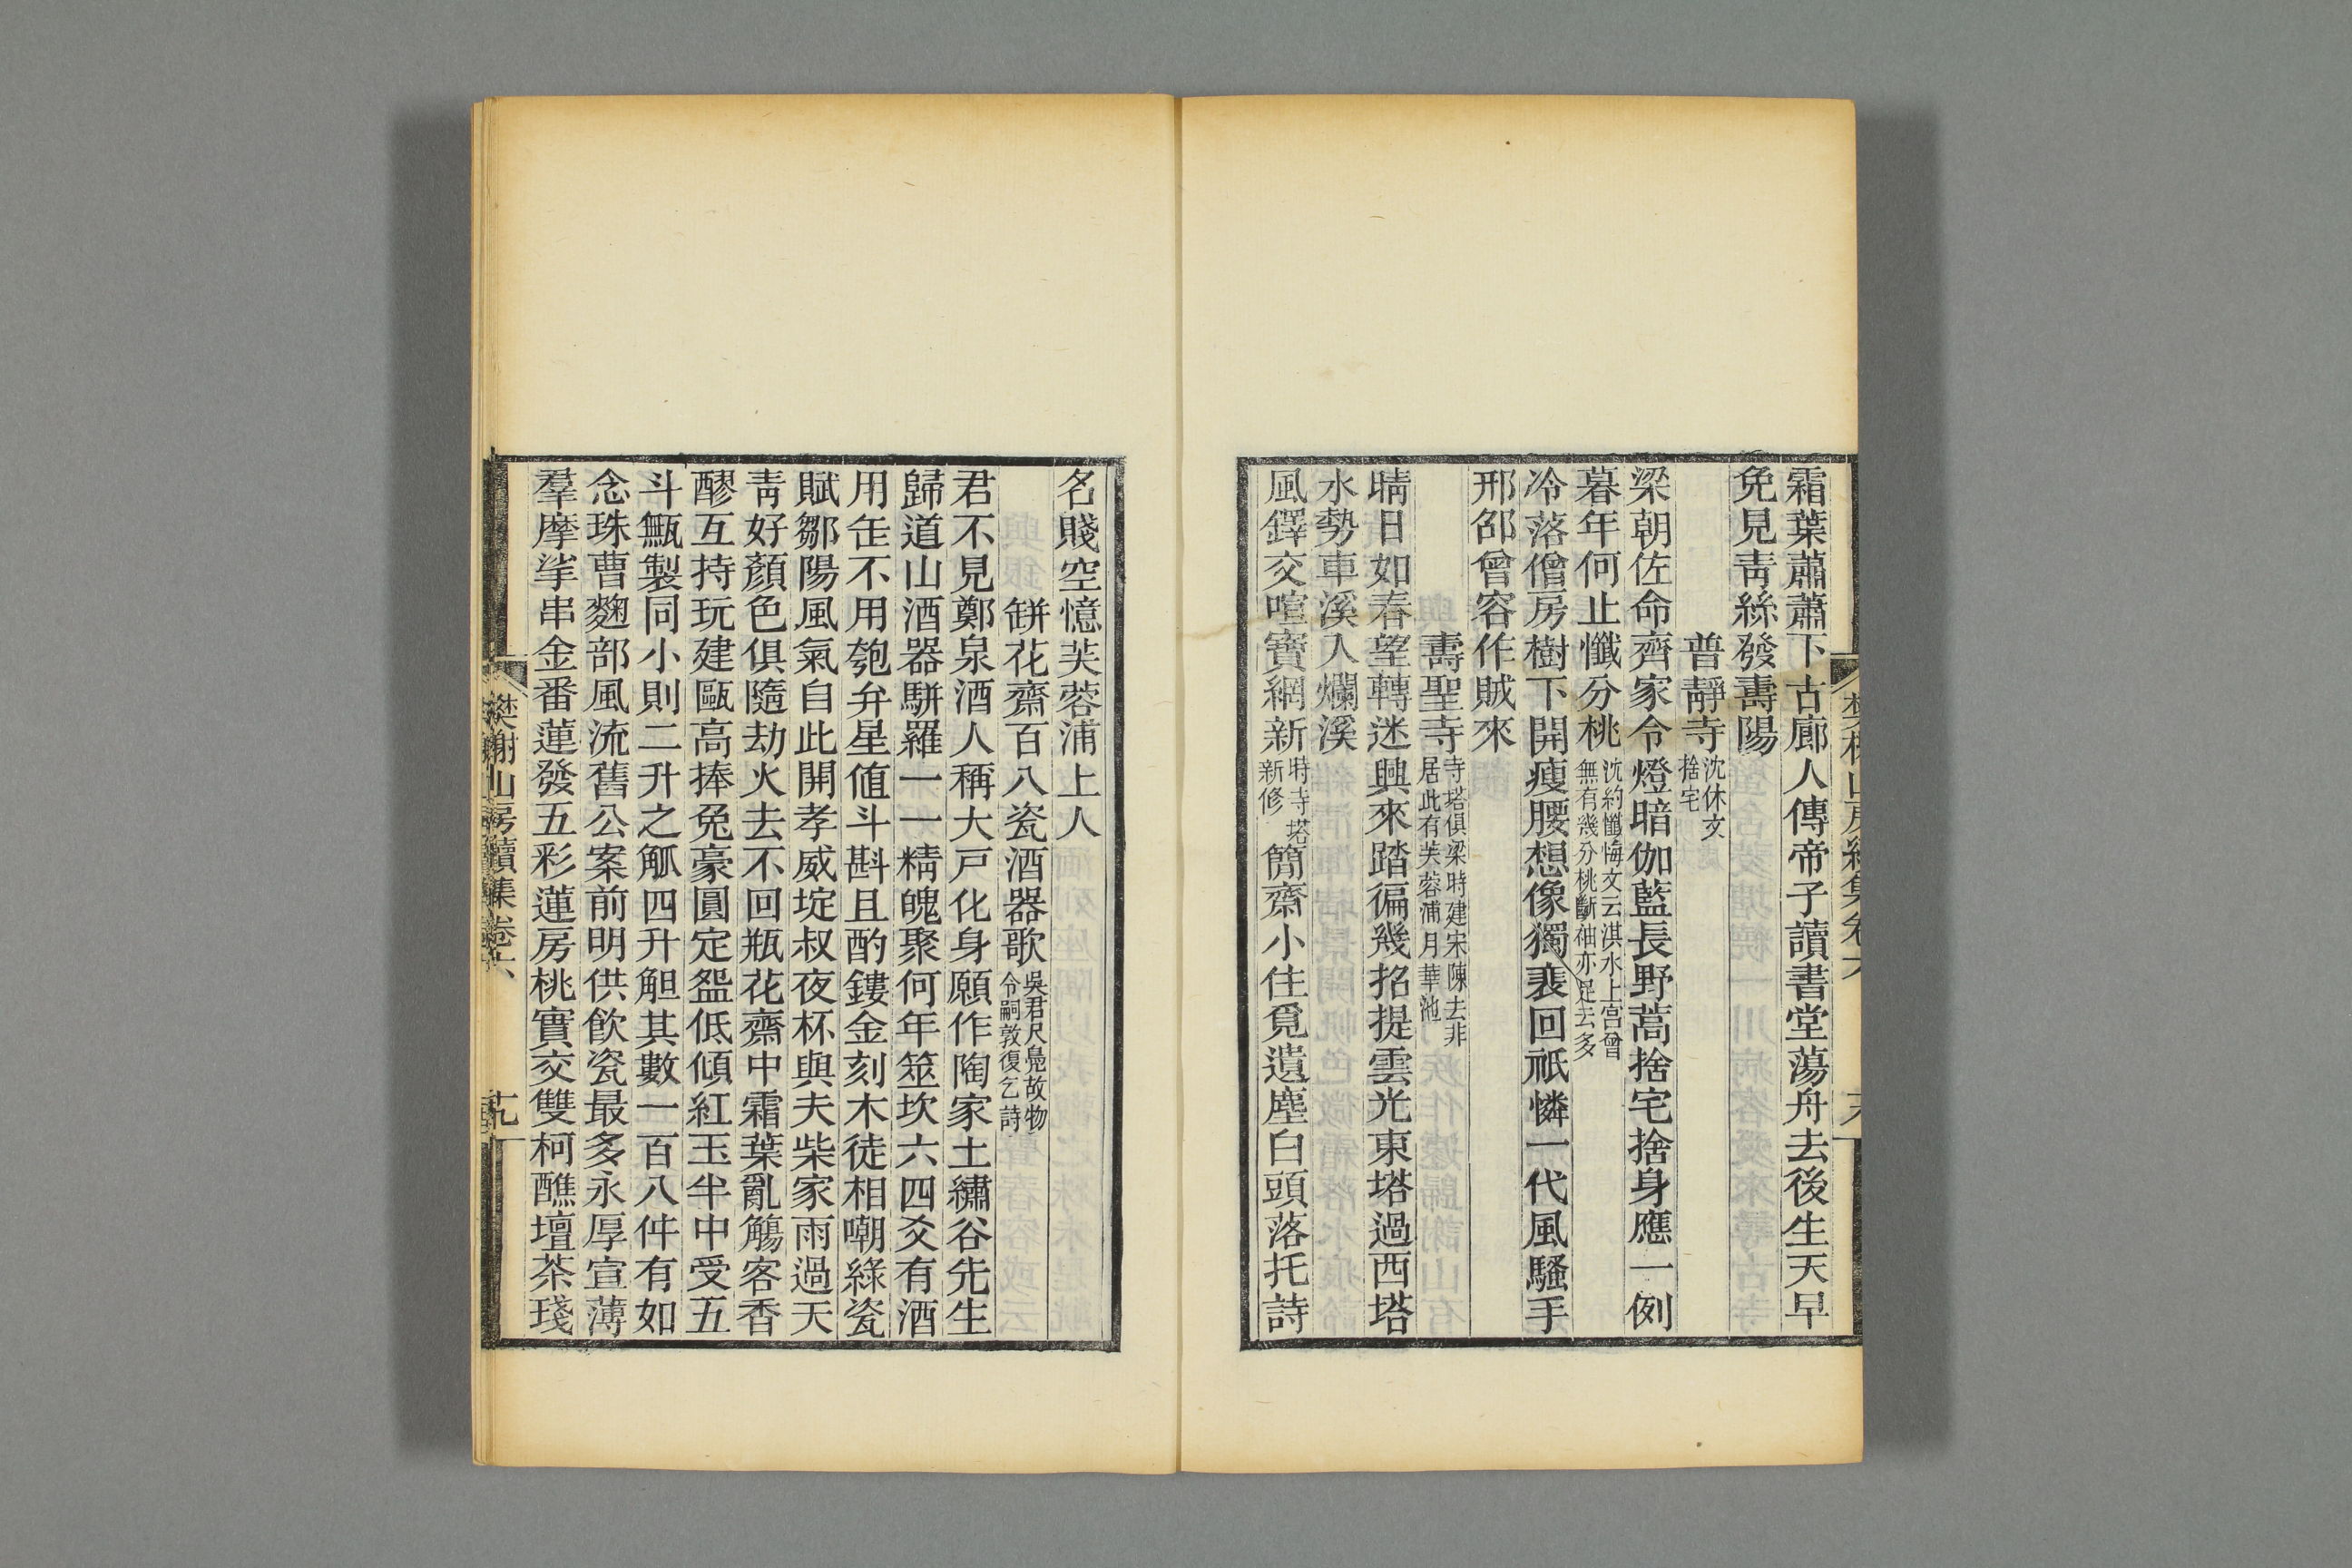 霜葉蕭蕭下古廊人傳帝子讀書堂蕩舟去後生天早
免見靑絲發壽陽
普靜寺沈休文捨宅
梁朝佐命齊家令燈暗伽藍長野蒿捨宅捨身應一例
暮年何止懺分桃沈約懺悔文云淇水上宮曾無有幾分桃斷䄂亦足云多
冷落僧房樹下開瘦腰想像獨裵回祇憐一代風騷手
邢邵曾容作賊來
壽聖寺寺塔俱梁時建宋陳去非居此有芙蓉浦月華池
晴日如春望轉迷興來踏徧幾招提雲光東塔過西塔
水勢車溪入爛溪
風鐸交喧寶網新時寺塔新修簡齋小住覓遺塵白頭落托詩
名賤空憶芙蓉浦上人
缾花齋百八瓷酒器歌吳君尺鳧故物令嗣敦復乞詩
君不見鄭泉酒人稱大戸化身願作陶家土繡谷先生
歸道山酒器駢羅一一精魄聚何年筮坎六四爻有酒
用缶不用匏弁星値斗斟且酌鏤金刻木徒相嘲綠瓷
賦鄒陽風氣自此開孝威埞叔夜杯與夫柴家雨過天
靑好顏色俱隨劫火去不回瓶花齋中霜葉亂觴客香
醪互持玩建甌高捧兔豪圓定盌低傾紅玉半中受五
斗甒製同小則二升之觚四升觛其數一百八件有如
念珠曹麴部風流舊公案前明供飮瓷最多永厚宣薄
羣摩挲串金番蓮發五彩蓮房桃實交雙柯醮壇茶琖
樊榭山房續集卷六